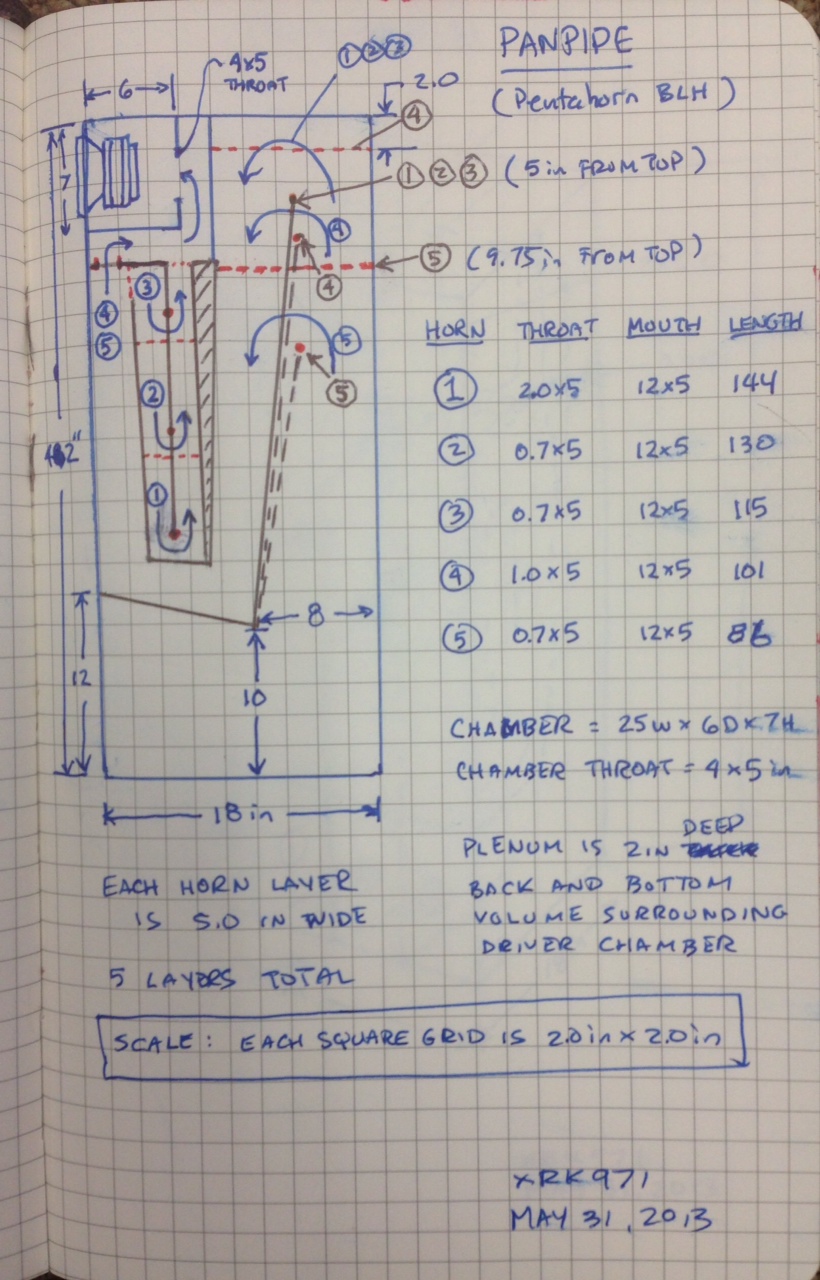 PANPIPE
(Pentahorn BLH)
① ② ③
4x5
THROAT
6
2.0
④
① ② ③ (5 in FROM TOP)
7
④
⑤ (9.75 in FROM TOP)
③
④
④
⑤
⑤
②
⑤
①
HORN THROAT MOUTH LENGTH
① 2.0x5 12x5 144
② 0.7x5 12x5 130
③ 0.7x5 12x5 115
④ 1.0x5 12x5 101
⑤ 0.7x5 12x5 86
8
12
10
18 in
CHAMBER = 25W x 6D x 7H
CHAMBER THROAT = 4x5 in
PLENUM IS 2IN DEEP
BACK AND BOTTOM
VOLUME SURROUNDING
DRIVER CHAMBER
EACH HORN LAYER
IS 5.0 IN WIDE
5 LAYERS TOTAL
SCALE: EACH SQUARE GRID IS 2.0 in x 2.0 in
xRK971
MAY 31, 2013